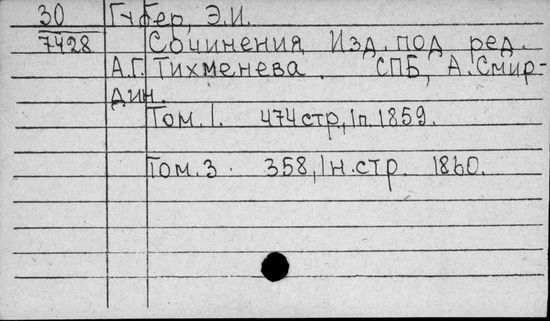 30 Губер, Э.И.
7428 Сочинения Изд. под ред.
А.Г. Тихменева. СПБ, А. Смир-
дин.
Том. 1. 474 стр., 1 п. 1859.
Том. 3. 358, 1 н. стр. 1860.